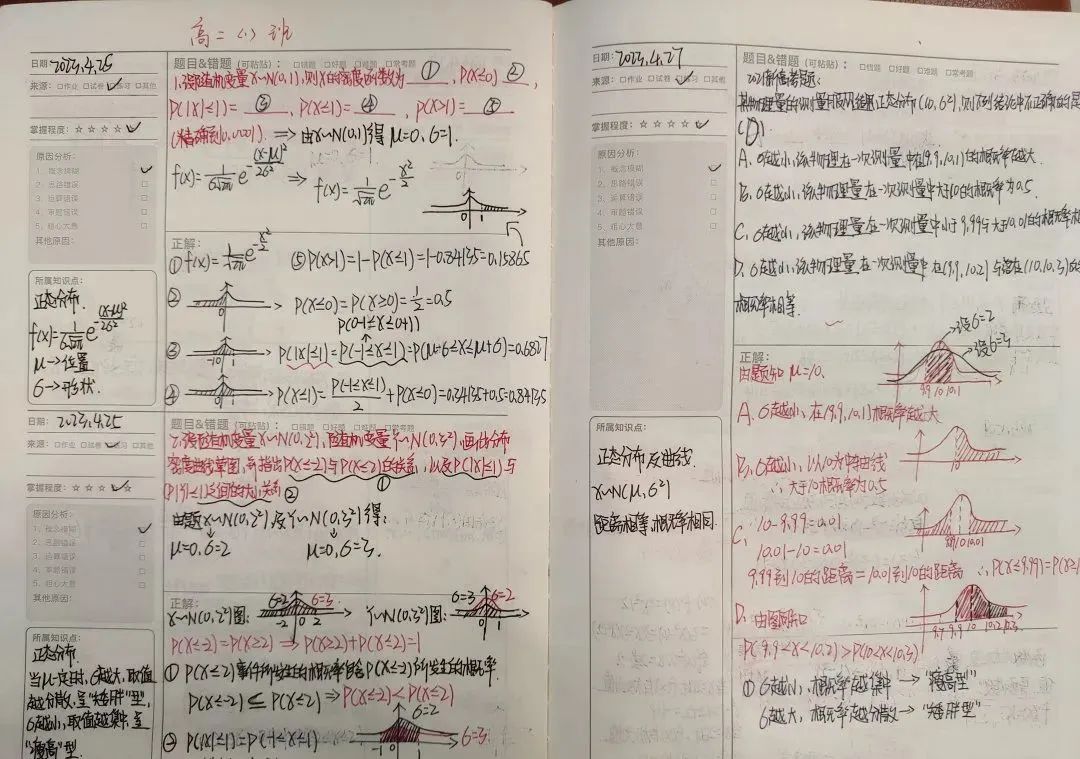 高二(1)班
日期: 2023.4.25
来源: □作业 □试卷 □练习 □其他
掌握程度: ☆ ☆ ☆ ☆
原因分析:
1、概念模糊
2、思路错误 □
3、运算错误 □
4、审题错误 □
5、粗心大意 □
其他原因:
所属知识点:
正态分布.
f(x)=1/(σ√2π) e^(-(x-μ)²/2σ²)
μ→位置
σ→形状.
题目&错题(可粘贴): □错题 □好题 □难题 □常考题
1.设随机变量X~N(0,1),则X的密度函数为 ① , P(X≤0) ② ,
P(|X|≤1)= ③ , P(X≤1)= ④ , P(X>1)= ⑤
(精确到0.0001). ⇒ 由X~N(0,1)得 μ=0, σ=1.
f(x)=1/(σ√2π) e^(-(x-μ)²/2σ²) ⇒ f(x)=1/√2π e^(-x²/2)
0 1
正解:
① f(x)=1/√2π e^(-x²/2) ⑤P(X>1)=1-P(X≤1)=1-0.84135=0.15865
② 0 P(X≤0)=P(X≥0)=1/2=0.5
P(0-1≤X≤0+1)
③ -1 0 1 P(|X|≤1)=P(-1≤X≤1)=P(μ-σ≤X≤μ+σ)=0.6827
④ 0 1 P(X≤1)=P(-1≤X≤1)/2+P(X≤0)=0.34135+0.5=0.84135
日期: 2023.4.25
来源: □作业 □试卷 □练习 □其他
掌握程度: ☆ ☆ ☆ ☆
原因分析:
1、概念模糊
2、思路错误 □
3、运算错误 □
4、审题错误 □
5、粗心大意 □
其他原因:
所属知识点:
正态分布.
当μ一定时,σ越大,取值
越分散,呈"矮胖"型,
σ越小,取值越集中,呈
"瘦高"型
题目&错题(可粘贴): □错题 □好题 □难题 □常考题
2.设随机变量X~N(0,2²),随机变量Y~N(0,3²),画出分布
密度曲线草图,并指出P(X≤-2)与P(X≤2)的关系,以及P(|X|≤1)与
P(|Y|≤1)之间的大小关系 ② ①
由题X~N(0,2²)及Y~N(0,3²)得:
μ=0,σ=2 μ=0,σ=3.
正解:
X~N(0,2²)图: σ=2 σ=3 -2 0 2 Y~N(0,3²)图: σ=3 σ=2 0 1
P(X≤-2)=P(X≥2) ⇒ P(X≥2)+P(X≤2)=1
① P(X≤2)事件所发生的概率包含P(X≤-2)所发生的概率.
P(X≤-2) ⊆ P(X≤2) ⇒ P(X≤-2)<P(X≤2)
② P(|X|≤1)=P(-1≤X≤1) -1 0 1 σ=2 σ=3
日期: 2023.4.27
来源: □作业 □试卷 □练习 □其他
掌握程度: ☆ ☆ ☆ ☆
原因分析:
1、概念模糊
2、思路错误 □
3、运算错误 □
4、审题错误 □
5、粗心大意 □
其他原因:
所属知识点:
正态分布及曲线.
X~N(μ,σ²)
距离相等,概率相同.
题目&错题(可粘贴): □错题 □好题 □难题 □常考题
2021新高考题:
某物理量的测量结果服从正态分布(10,σ²),则下列结论中不正确的是
(D)
A. σ越小,该物理量在一次测量中在(9.9,10.1)的概率越大.
B. σ越小,该物理量在一次测量中大于10的概率为0.5.
C. σ越小,该物理量在一次测量中小于9.99与大于10.01的概率相
D. σ越小,该物理量在一次测量中在(9.9,10.2)与落在(10,10.3)的
概率相等.
设σ=2
设σ=3
9.9 10 10.1
正解:
由题知 μ=10.
A. σ越小,在(9.9,10.1)概率越大
B. σ越小,以10为中轴曲线
∴大于10概率为0.5
10
C. ∵10-9.99=0.01
10.01-10=0.01
9.99 10 10.01
9.99到10的距离=10.01到10的距离 ∴P(X≤9.99)=P(X≥1
D. 由图可知
9.9 10 10.2 10.3
P(9.9<X<10.2)>P(10<X<10.3)
① σ越小,概率越集中→"瘦高型"
σ越大,概率越分散→"矮胖型"